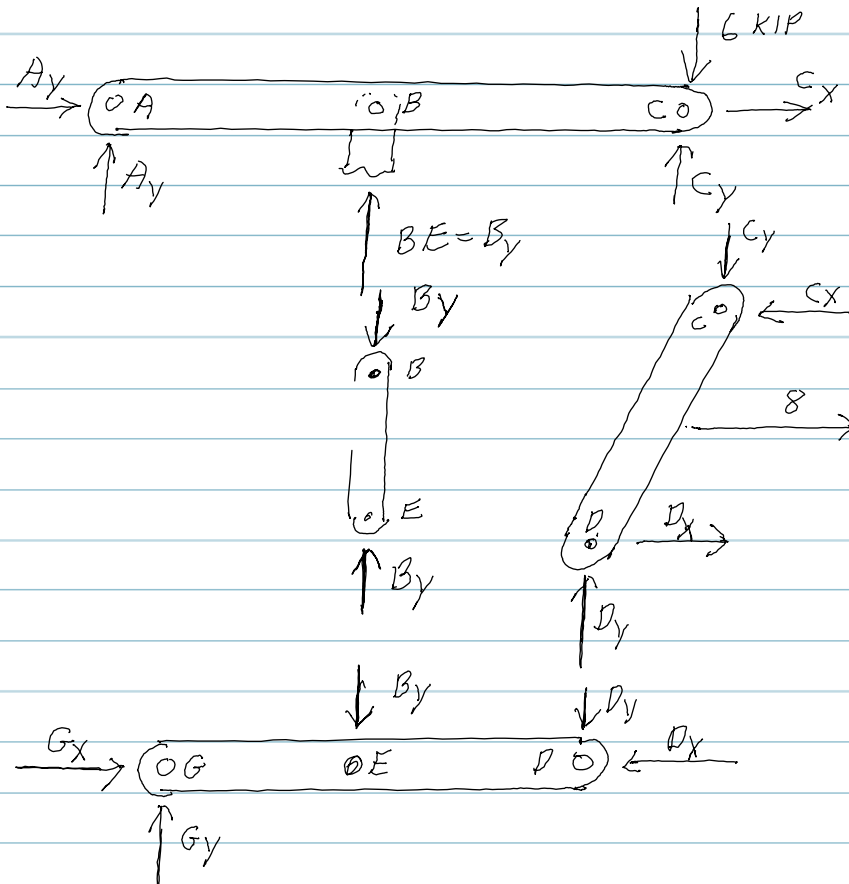 6 KIP
Ay
A
B
C
Cx
Ay
Cy
BE = By
Cy
By
Cx
C
B
8
E
D
Dx
By
Dy
By
Dy
Gx
G
E
D
Dx
Gy